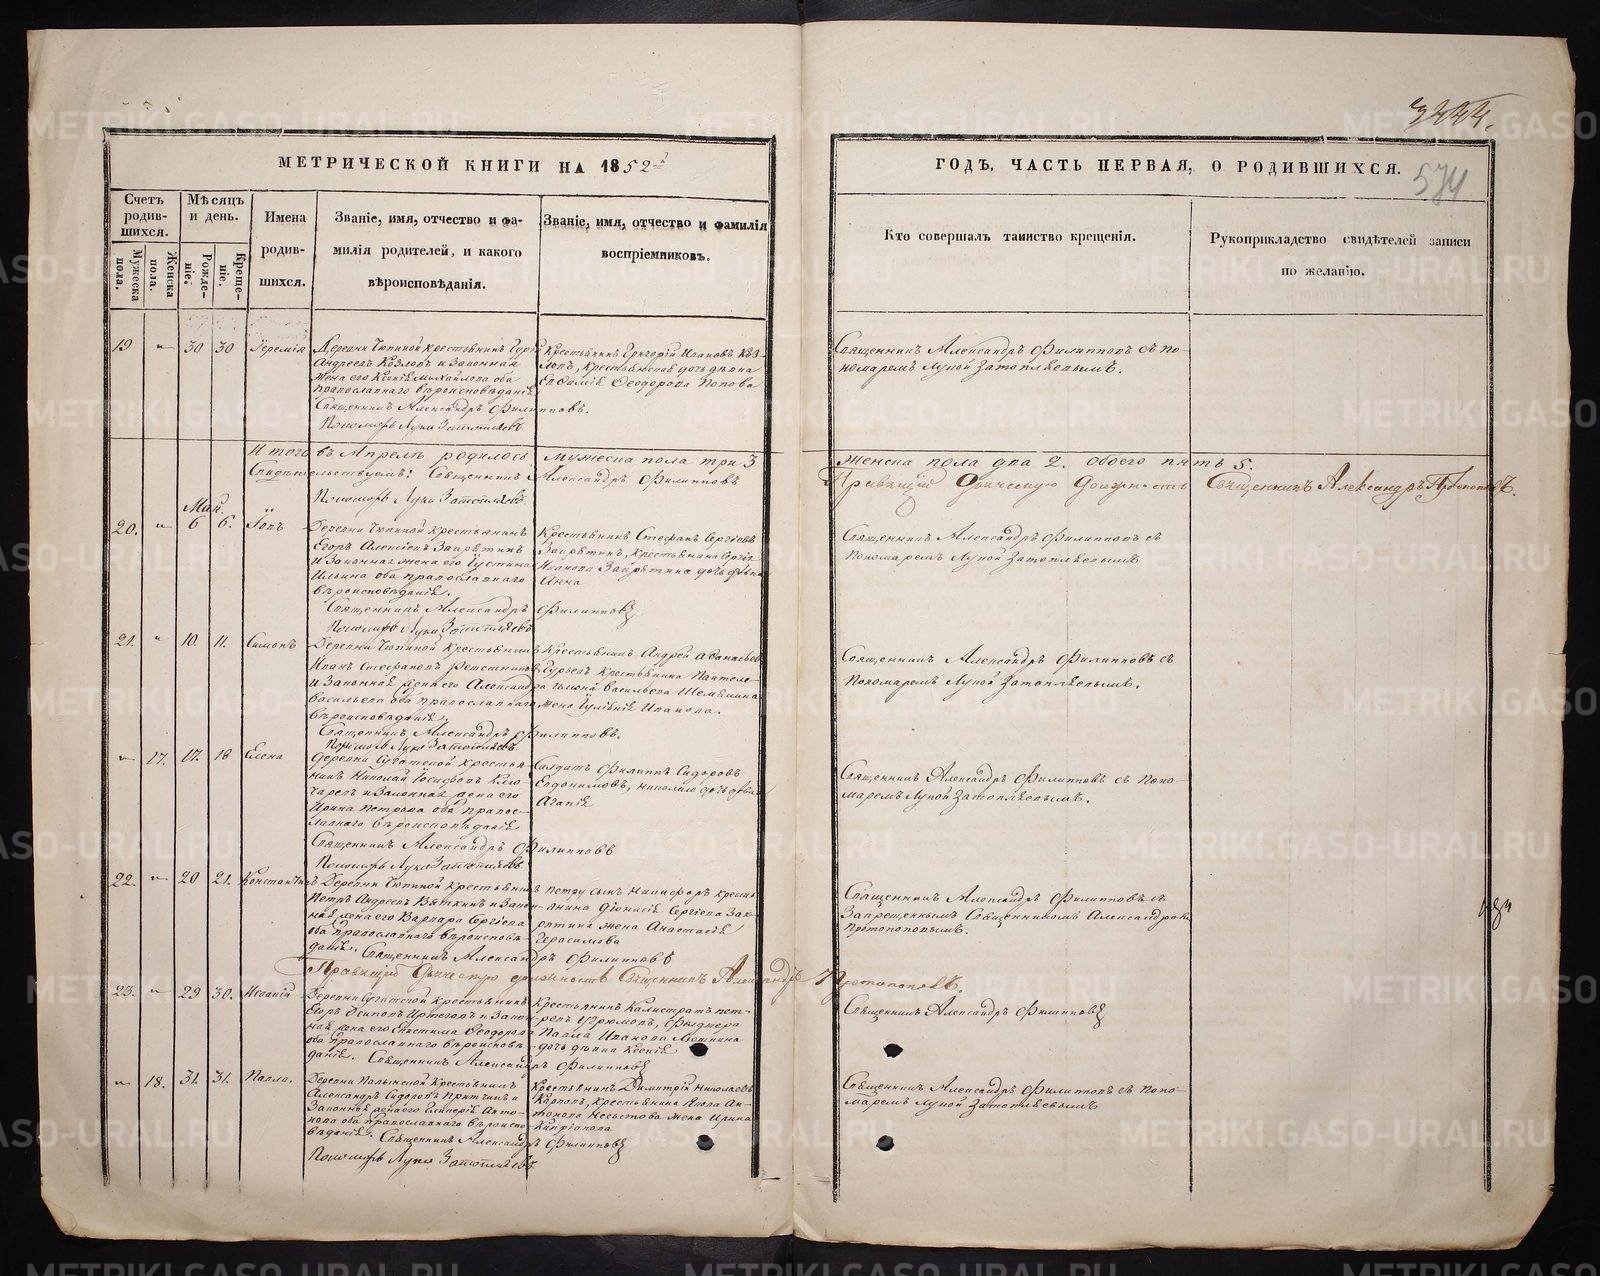 3444.
МЕТРИЧЕСКОЙ КНИГИ НА 1852й
ГОДЪ, ЧАСТЬ ПЕРВАЯ, О РОДИВШИХСЯ.
574
Счетъ родив-шихся.
Мужеска пола.
Женска пола.
Мѣсяцъ и день.
Рожде-нiе.
Креще-нiе.
Имена
родив-
шихся.
Званiе, имя, отчество и фа-
милiя родителей, и какого
вѣроисповѣданiя.
Званiе, имя, отчество и фамилiя
воспрiемниковъ.
Кто совершалъ таинство крещенiя.
Рукоприкладство свидѣтелей записи
по желанiю.
19 " 30 30 Iеремiя
Деревни Чюпиной крестьянинъ Гурiй
Андреевъ Козловъ и Законная
жена его Ксенiя Михайлова оба
православнаго вѣроисповѣданiя
Священникъ Александръ Филипповъ.
Пономарь Лука Затопляевъ
Крестьянинъ Григорiй Ивановъ Коз-
ловъ, крестьянская дочь дѣвка
Евфимiя Феодорова Попова
Священникъ Александръ Филипповъ съ По-
номаремъ Лукой Затопляевымъ.
Итого въ Апрелѣ родилось мужеска пола три 3
женска пола два 2. обоего пять 5.
Свидѣтельствуемъ: Священникъ Александръ Филипповъ
Пономарь Лука Затопляевъ
Правящiй Должность Священникъ Александръ Протопоповъ.
Май.
20. " 6 6. Iовъ
Деревни Чюпиной крестьянинъ
Егоръ Алексiевъ
и Законная жена его Iустина
Ильина оба православнаго
вѣроисповѣданiя.
Священникъ Александръ Филипповъ
Пономарь Лука Затопляевъ
Крестьянинъ Стефанъ Сергiевъ
крестьянина Сергiя
Иванова дочь дѣвка
Анна
Священникъ Александръ Филипповъ съ
Пономаремъ Лукой Затопляевымъ
21. " 10. 11. Симонъ
Деревни Чюпиной крестьянинъ
Иванъ Стефановъ Решетниковъ
и Законная жена его Александра
Васильева оба православнаго
вѣроисповѣданiя.
Священникъ Александръ Филипповъ.
Пономарь Лука Затопляевъ.
Крестьянинъ Андрей Афанасьевъ
Гурьевъ крестьянина Пантеле-
Васильева
жена Iулiянiя Иванова.
Священникъ Александръ Филипповъ съ
Пономаремъ Лукой Затопляевымъ.
" 17. 17. 18 Елена
Деревни крестья-
нинъ Николай Iосифовъ
и Законная жена его
Ирина Петрова оба право-
славнаго вѣроисповѣданiя
Священникъ Александръ Филипповъ
Пономарь Лука Затопляевъ
Солдатъ Филиппъ Сидоровъ
Евдокимовъ, дочь дѣвка
Агапiя
Священникъ Александръ Филипповъ съ Поно-
маремъ Лукой Затопляевымъ.
22. " 20 21. Константинъ
Деревни Чюпиной крестьянинъ
Петръ Андреевъ Вяткинъ и Закон-
ная жена его Варвара Сергiева
оба православнаго вѣроисповѣ-
данiя. Священникъ Александръ Филипповъ
Петру сынъ Никифоръ кресть-
янина Дiонисiя Сергiева
жена Анастасiя
Герасимова
Священникъ Александръ Филипповъ съ
Запрещеннымъ Священникомъ Александромъ
Протопоповымъ.
Правящiй должность Священникъ Александръ Протопоповъ.
23. " 29 30.
Деревни крестьянинъ
Егоръ Осиповъ и Закон-
ная жена его Феодорова
оба православнаго вѣроисповѣ-
данiя. Священникъ Александръ Филипповъ
Крестьянинъ Калистратъ Пет-
ровъ Угрюмовъ,
Павла Иванова
дочь дѣвка Ксенiя
Священникъ Александръ Филипповъ
" 18. 31. 31. Павла.
Деревни крестьянинъ
Александръ Сидоровъ и
Законная жена его Анто-
нова оба православнаго вѣроиспо-
вѣданiя. Священникъ Александръ Филипповъ
Пономарь Лука Затопляевъ
Крестьянинъ Димитрiй Николаевъ
Карповъ, крестьянина Ан-
тонова жена Ирина
Кипрiанова
Священникъ Александръ Филипповъ съ Поно-
маремъ Лукой Затопляевымъ
METRIKI.GASO-URAL.RU